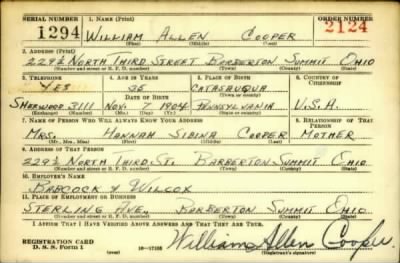 SERIAL NUMBER 1. NAME (Print) ORDER NUMBER
1294 WILLIAM ALLEN COOPER 2124
(First) (Middle) (Last)
2. ADDRESS (Print)
229½ NORTH THIRD STREET BARBERTON SUMMIT OHIO
(Number and street or R. F. D. number) (Town) (County) (State)
3. TELEPHONE 4. AGE IN YEARS 5. PLACE OF BIRTH 6. COUNTRY OF CITIZENSHIP
YES 35 CATASAUQUA
DATE OF BIRTH (Town or county)
SHERWOOD 3111 NOV. 7 1904 PENNSYLVANIA U.S.A.
(Exchange) (Number) (Mo.) (Day) (Yr.) (State or country)
7. NAME OF PERSON WHO WILL ALWAYS KNOW YOUR ADDRESS 8. RELATIONSHIP OF THAT PERSON
MRS. HANNAH SIBINA COOPER MOTHER
(Mr., Mrs., Miss) (First) (Middle) (Last)
9. ADDRESS OF THAT PERSON
229½ NORTH THIRD ST. BARBERTON SUMMIT OHIO
(Number and street or R. F. D. number) (Town) (County) (State)
10. EMPLOYER'S NAME
BABCOCK & WILCOX
11. PLACE OF EMPLOYMENT OR BUSINESS
STERLING AVE. BARBERTON SUMMIT OHIO
(Number and street or R. F. D. number) (Town) (County) (State)
I AFFIRM THAT I HAVE VERIFIED ABOVE ANSWERS AND THAT THEY ARE TRUE.
REGISTRATION CARD
D. S. S. FORM 1 William Allen Cooper
(Registrant's signature)